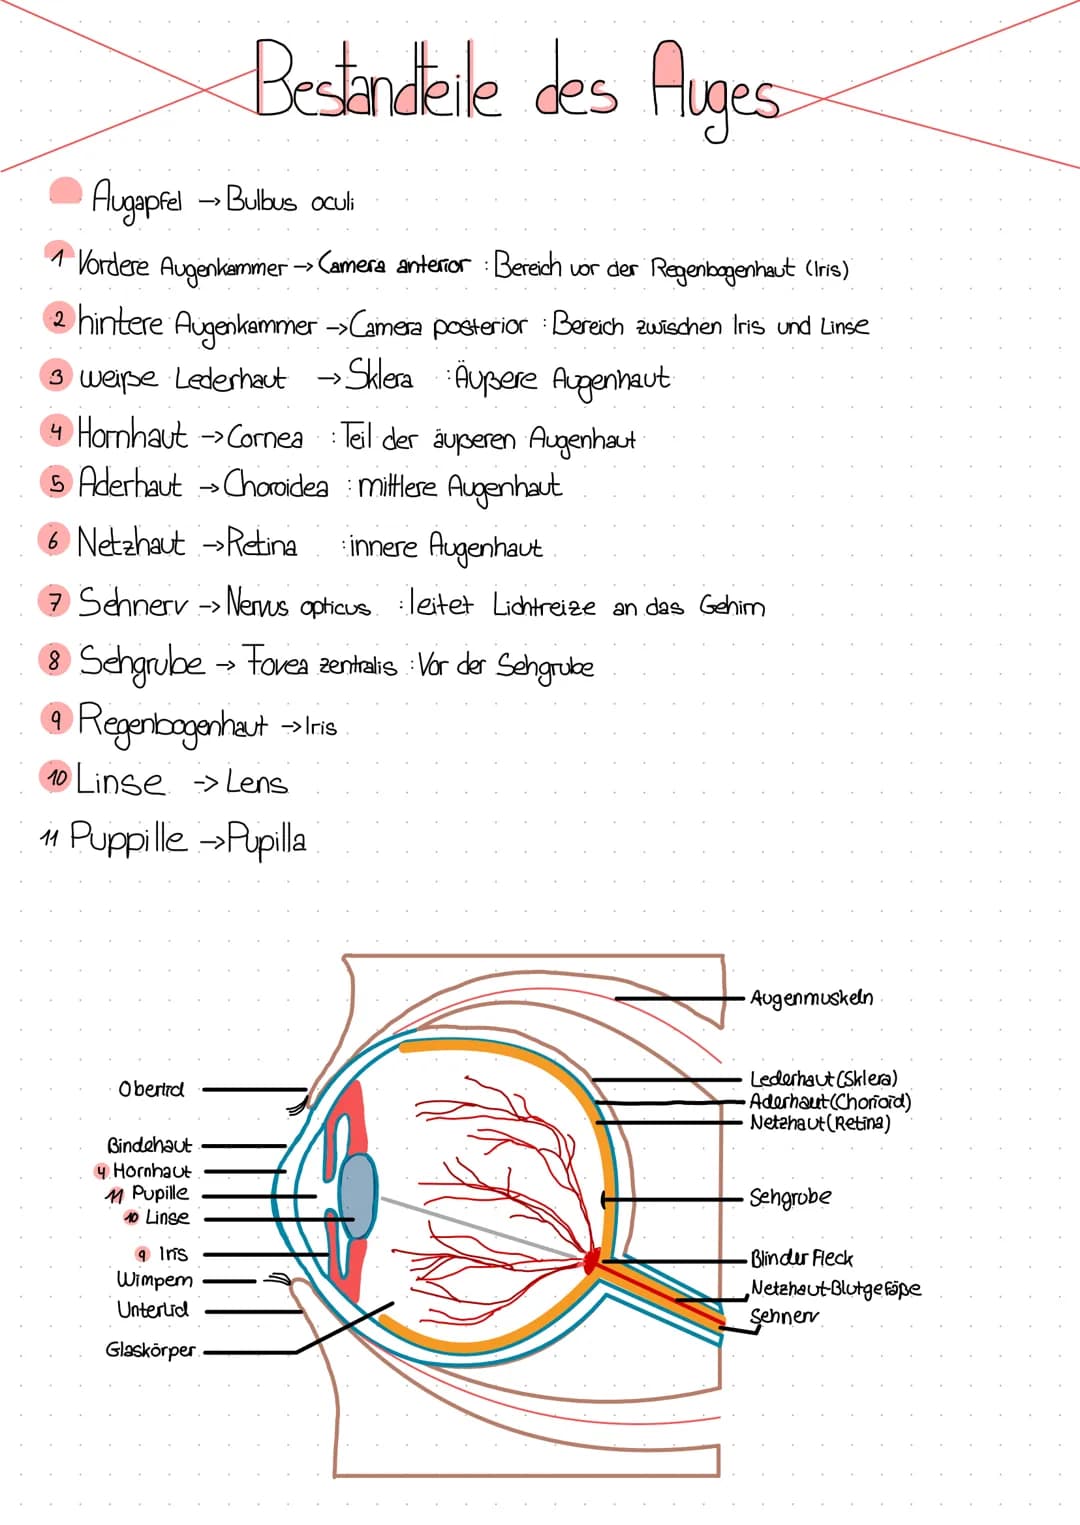 Bestandteile des Auges
Augapfel → Bulbus oculi
1 Vordere Augenkammer → Camera anterior : Bereich vor der Regenbogenhaut (Iris)
2 hintere Augenkammer → Camera posterior : Bereich zwischen Iris und Linse
3 weiße Lederhaut → Sklera : Äußere Augenhaut
4 Hornhaut → Cornea : Teil der äußeren Augenhaut
5 Aderhaut → Choroidea : mittlere Augenhaut
6 Netzhaut → Retina : innere Augenhaut
7 Sehnerv → Nervus opticus : leitet Lichtreize an das Gehirn
8 Sehgrube → Fovea zentralis : Vor der Sehgrube
9 Regenbogenhaut → Iris
10 Linse → Lens
11 Puppille → Pupilla
Augenmuskeln
Oberlid
Lederhaut (Sklera)
Aderhaut (Chorioid)
Netzhaut (Retina)
Bindehaut
4 Hornhaut
11 Pupille
10 Linse
Sehgrube
9 Iris
Wimpern
Unterlid
Glaskörper
Blinder Fleck
Netzhaut-Blutgefäße
Sehnerv